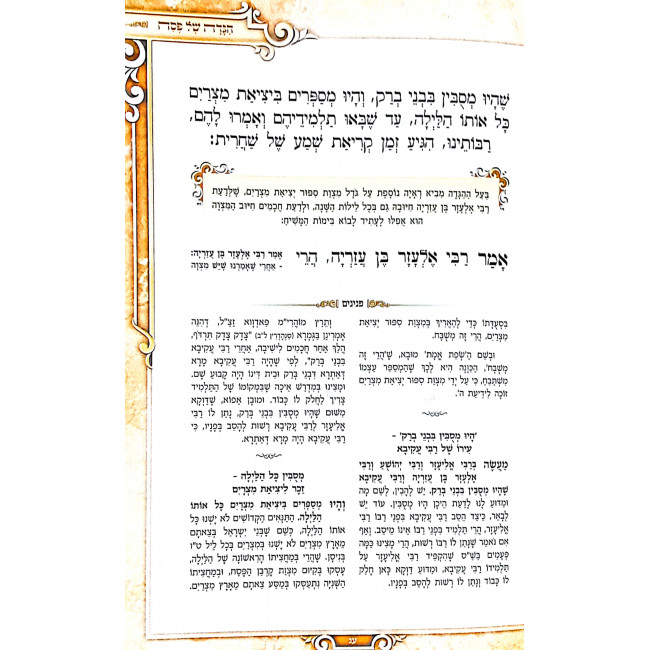 הגדה של פסח
שֶׁהָיוּ מְסֻבִּין בִּבְנֵי בְרַק, וְהָיוּ מְסַפְּרִים בִּיצִיאַת מִצְרַיִם
כָּל אוֹתוֹ הַלַּיְלָה, עַד שֶׁבָּאוּ תַלְמִידֵיהֶם וְאָמְרוּ לָהֶם,
רַבּוֹתֵינוּ, הִגִּיעַ זְמַן קְרִיאַת שְׁמַע שֶׁל שַׁחֲרִית:
בַּעַל הַהַגָּדָה מֵבִיא רְאָיָה נוֹסֶפֶת עַל גֹּדֶל מִצְוַת סִפּוּר יְצִיאַת מִצְרַיִם, שֶׁלְּדַעַת
רַבִּי אֶלְעָזָר בֶּן עֲזַרְיָה חִיּוּבָהּ גַּם בְּכָל לֵילוֹת הַשָּׁנָה, וּלְדַעַת חֲכָמִים חִיּוּב הַמִּצְוָה
הוּא אֲפִלּוּ לֶעָתִיד לָבוֹא בִּימוֹת הַמָּשִׁיחַ:
אָמַר רַבִּי אֶלְעָזָר בֶּן עֲזַרְיָה, הֲרֵי
אָמַר רַבִּי אֶלְעָזָר בֶּן עֲזַרְיָה:
- אַחֲרֵי שֶׁאָמַרְנוּ שֶׁיֵּשׁ מִצְוָה
פנינים
בִּסְעֻדָּתוֹ כְּדֵי לְהַאֲרִיךְ בְּמִצְוַת סִפּוּר יְצִיאַת
מִצְרַיִם, הֲרֵי זֶה מְשֻׁבָּח.
וּבְשֵׁם הַ'שְּׂפַת אֱמֶת' מוּבָא, שֶׁ'הֲרֵי זֶה
מְשֻׁבָּח', הַכַּוָּנָה הִיא לְכָךְ שֶׁהַמְסַפֵּר עַצְמוֹ
מִשְׁתַּבֵּחַ, כִּי עַל יְדֵי מִצְוַת סִפּוּר יְצִיאַת מִצְרַיִם
זוֹכֶה לִידִיעַת ה'.
'הָיוּ מְסֻבִּין בִּבְנֵי בְרַק' -
עִירוֹ שֶׁל רַבִּי עֲקִיבָא
מַעֲשֶׂה בְּרַבִּי אֱלִיעֶזֶר וְרַבִּי יְהוֹשֻׁעַ וְרַבִּי
אֶלְעָזָר בֶּן עֲזַרְיָה וְרַבִּי עֲקִיבָא
שֶׁהָיוּ מְסֻבִּין בִּבְנֵי בְרַק. יֵשׁ לְהָבִין, לְשֵׁם מָה
וּמַדּוּעַ לָנוּ לָדַעַת הֵיכָן הָיוּ מְסֻבִּין. עוֹד יֵשׁ
לְבָאֵר, כֵּיצַד הֵסֵב רַבִּי עֲקִיבָא בִּפְנֵי רַבּוֹ רַבִּי
אֱלִיעֶזֶר, הֲרֵי תַּלְמִיד בִּפְנֵי רַבּוֹ אֵינוֹ מֵיסֵב. וְאַף
אִם נֹאמַר שֶׁנָּתַן לוֹ רַבּוֹ רְשׁוּת, הֲרֵי מָצִינוּ כַּמָּה
פְּעָמִים בְּשַׁ"ס שֶׁהִקְפִּיד רַבִּי אֱלִיעֶזֶר עַל
תַּלְמִידוֹ רַבִּי עֲקִיבָא, וּמַדּוּעַ דַּוְקָא כָּאן חָלַק
לוֹ כָּבוֹד וְנָתַן לוֹ רְשׁוּת לְהָסֵב בְּפָנָיו.
וְתֵרֵץ מוֹהֲרִי"מ פַּאדְוָוא זַצַ"ל, דְּהִנֵּה
אָמְרִינַן בַּגְּמָרָא (סנהדרין ל"ב) "צֶדֶק צֶדֶק תִּרְדֹּף,
הַלֵּךְ אַחַר חֲכָמִים לִישִׁיבָה, אַחֲרֵי רַבִּי עֲקִיבָא
בִּבְנֵי בְרַק", לְפִי שֶׁהָיָה רַבִּי עֲקִיבָא מָרָא
דְאַתְרָא דִּבְנֵי בְרַק וּבֵית דִּינוֹ הָיָה קָבוּעַ שָׁם.
וּמָצִינוּ בַּמִּדְרָשׁ אֵיכָה שֶׁבִּמְקוֹמוֹ שֶׁל הַתַּלְמִיד
צָרִיךְ לַחֲלֹק לוֹ כָּבוֹד. וּמוּבָן אֵפוֹא, שֶׁדַּוְקָא
מִשּׁוּם שֶׁהָיוּ מְסֻבִּין בִּבְנֵי בְרַק, נָתַן לוֹ רַבִּי
אֱלִיעֶזֶר לְרַבִּי עֲקִיבָא רְשׁוּת לְהָסֵב בְּפָנָיו, כִּי
רַבִּי עֲקִיבָא הָיָה מָרָא דְאַתְרָא.
מְסֻבִּין כָּל הַלַּיְלָה -
זֵכֶר לִיצִיאַת מִצְרַיִם
וְהָיוּ מְסַפְּרִים בִּיצִיאַת מִצְרַיִם כָּל אוֹתוֹ
הַלַּיְלָה. הַתַּנָּאִים הַקְּדוֹשִׁים לֹא יָשְׁנוּ כָּל
אוֹתוֹ הַלַּיְלָה, כְּשֵׁם שֶׁבְּנֵי יִשְׂרָאֵל בְּצֵאתָם
מֵאֶרֶץ מִצְרַיִם לֹא יָשְׁנוּ בְּמִצְרַיִם בְּכָל לֵיל ט"ו
בְּנִיסָן. שֶׁהֲרֵי בְּמַחֲצִיתוֹ הָרִאשׁוֹנָה שֶׁל הַלַּיְלָה,
עָסְקוּ בְּקִיּוּם מִצְוַת קָרְבַּן הַפֶּסַח, וּבְמַחֲצִיתוֹ
הַשְּׁנִיָּה נִתְעַסְּקוּ בְּמַסַּע צֵאתָם מֵאֶרֶץ מִצְרַיִם.